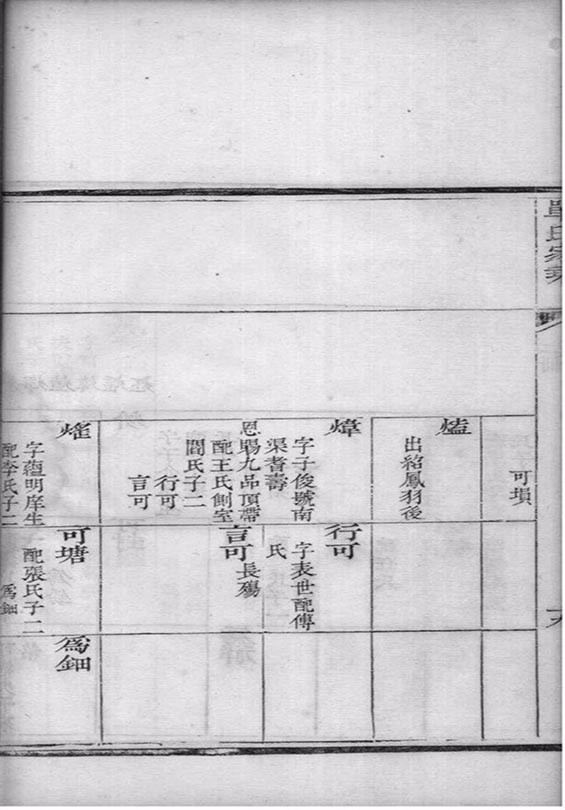 單氏家乘
可塤
熆
出紹鳳羽後
煒
字子俊號南
渠耆壽
恩賜九品頂帶
配王氏副室
閻氏子二
行可
言可
行可
字表世配傅
氏
言可
長殤
熎
字蘊明庠生
配李氏子二
可塘
配張氏子二
爲鈿
爲鈿